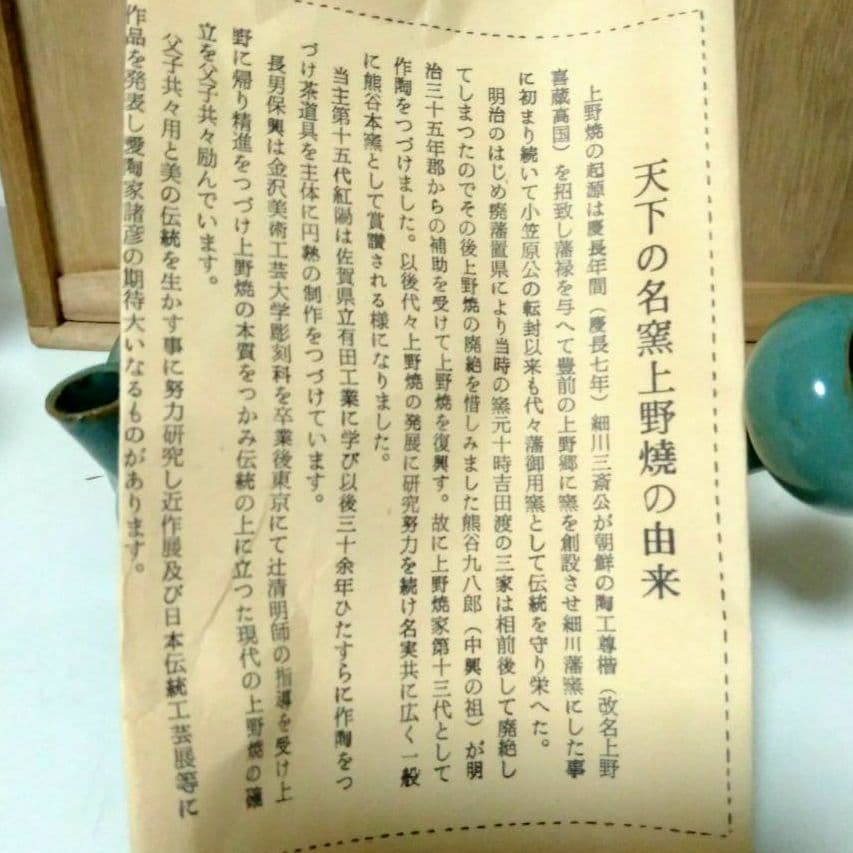 天下の名窯上野燒の由来
上野焼の起源は慶長年間（慶長七年）細川三斎公が朝鮮の陶工尊楷（改名上野
喜蔵高国）を招致し藩禄を与へて豊前の上野郷に窯を創設させ細川藩窯にした事
に初まり続いて小笠原公の転封以来も代々藩御用窯として伝統を守り栄へた。
明治のはじめ廃藩置県により当時の窯元十時吉田渡の三家は相前後して廃絶し
てしまつたのでその後上野焼の廃絶を惜しみました熊谷九八郎（中興の祖）が明
治三十五年郡からの補助を受けて上野焼を復興す。故に上野焼家第十三代として
作陶をつづけました。以後代々上野焼の発展に研究努力を続け名実共に広く一般
に熊谷本窯として賞讃される様になりました。
当主第十五代紅陽は佐賀県立有田工業に学び以後三十余年ひたすらに作陶をつ
づけ茶道具を主体に円熟の制作をつづけています。
長男保興は金沢美術工芸大学彫刻科を卒業後東京にて辻清明師の指導を受け上
野に帰り精進をつづけ上野焼の本質をつかみ伝統の上に立つた現代の上野焼の確
立を父子共々励んでいます。
父子共々用と美の伝統を生かす事に努力研究し近作展及び日本伝統工芸展等に
作品を発表し愛陶家諸彦の期待大いなるものがあります。